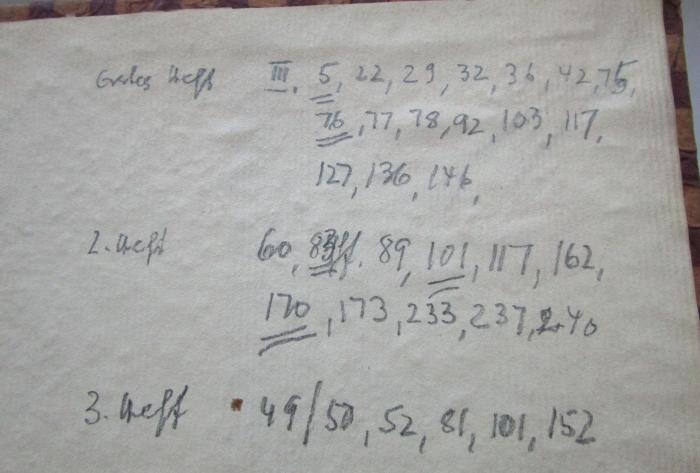 Erstes Heft III, 5, 22, 29, 32, 36, 42, 75,
76, 77, 78, 92, 103, 117,
127, 136, 146,
2. Heft 60, 83ff. 89, 101, 117, 162,
170, 173, 233, 237, 240
3. Heft 49/50, 52, 81, 101, 152